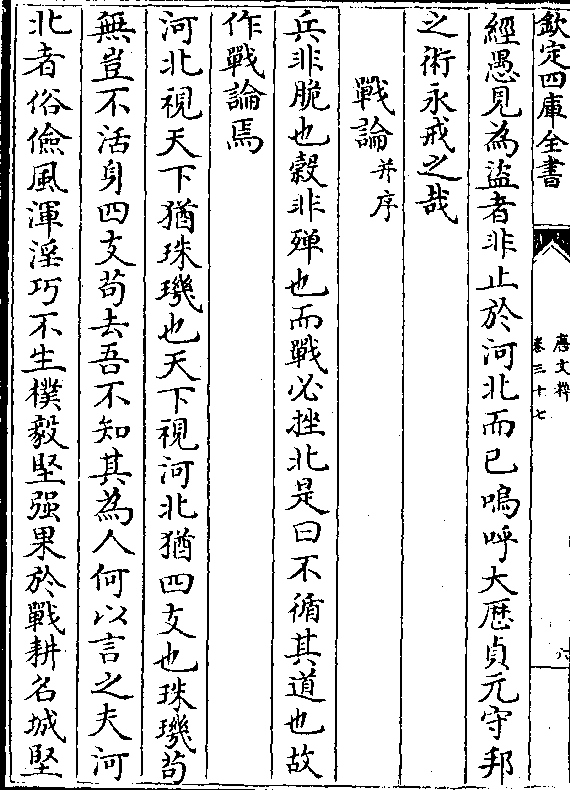 欽定四庫全書
唐文粹
卷三十七
六
經愚見為盜者非止於河北而已嗚呼大厯貞元守邦
之術永戒之哉
戰論并序
兵非脆也穀非殫也而戰必挫北是曰不循其道也故
作戰論焉
河北視天下猶珠璣也天下視河北猶四支也珠璣茍
無豈不活身四支茍去吾不知其為人何以言之夫河
北者俗儉風渾淫巧不生樸毅堅强果於戰耕名城堅